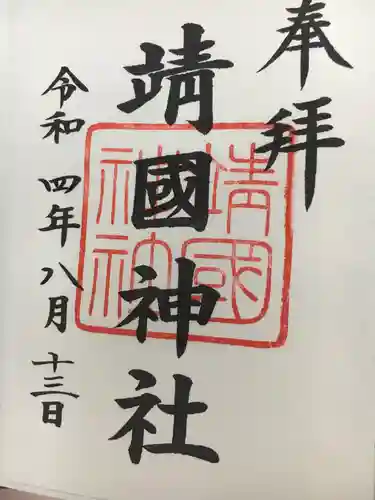 奉拝
靖國神社
靖國
神社
令和四年八月十三日